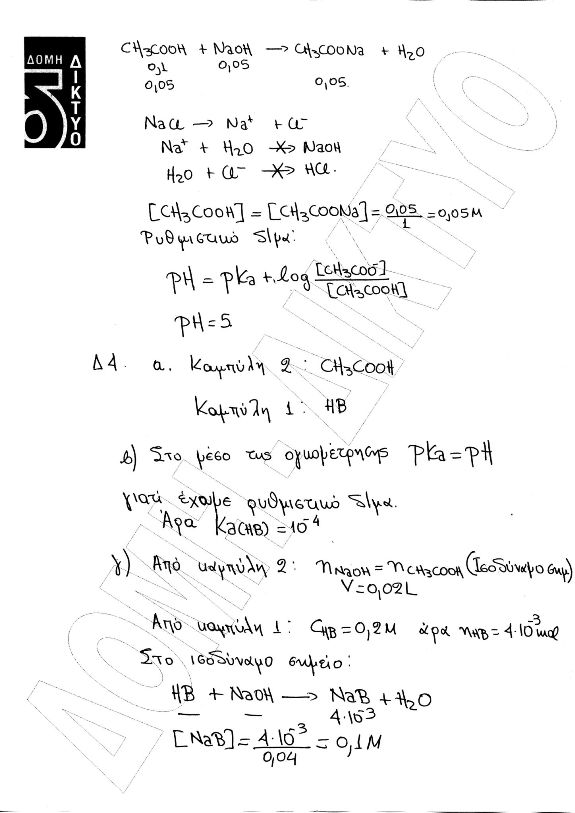 ΔΟΜΗ
ΔΙΚΤΥΟ
CH3COOH + NaOH → CH3COONa + H2O
0,1 0,05
0,05 0,05
NaCl → Na⁺ + Cl⁻
Na⁺ + H2O ↛ NaOH
H2O + Cl⁻ ↛ HCl.
[CH3COOH] = [CH3COONa] = 0,05/1 = 0,05M
Ρυθμιστικό δ/μα:
pH = pKa + log [CH3COO⁻]/[CH3COOH]
pH = 5
Δ4. α. Καμπύλη 2 : CH3COOH
Καμπύλη 1 : HB
β) Στο μέσο της ογκομέτρησης pKa = pH
γιατί έχουμε ρυθμιστικό δ/μα.
Άρα Ka(HB) = 10⁻⁴
γ) Από καμπύλη 2: nNaOH = nCH3COOH (Ισοδύναμο σημ)
V = 0,02L
Από καμπύλη 1: CHB = 0,2M άρα nHB = 4·10⁻³ mol
Στο ισοδύναμο σημείο:
HB + NaOH → NaB + H2O
— — 4·10⁻³
[NaB] = 4·10⁻³/0,04 = 0,1M
ΔΟΜΗ - ΔΙΚΤΥΟ